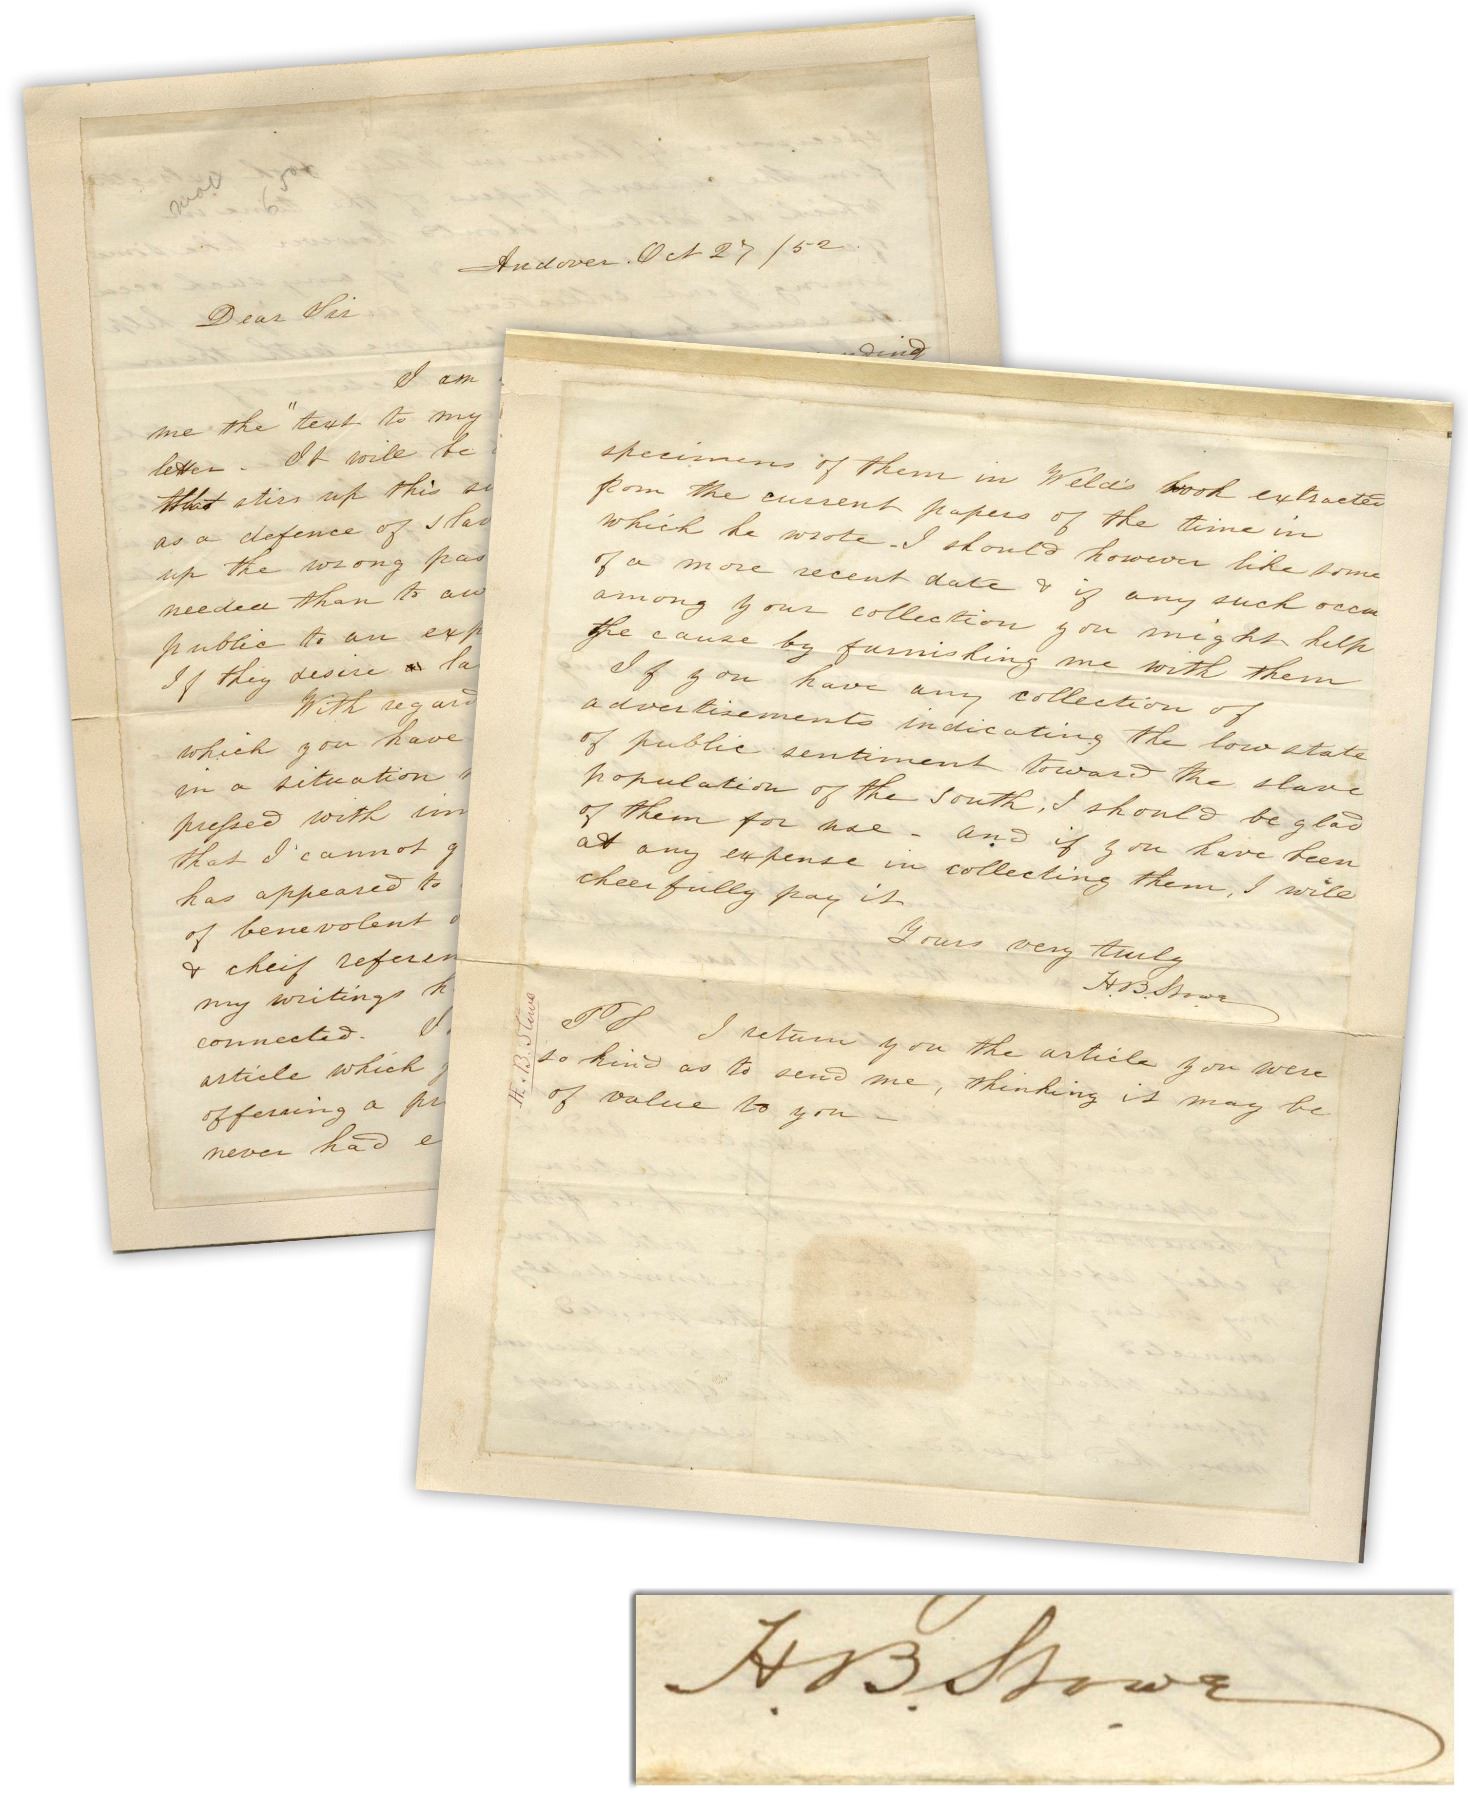 Andover. Oct 27 /52.
Dear Sir
I am
nding
me the "text to my
letter - It will be
that stirs up this
as a defence of slav
up the wrong pas
needed than to aw
public to an exp
If they desire a la
With regard
which you have
in a situation
pressed with im
that I cannot g
has appeared to
of benevolent
& cheif referen
my writings h
connected. I
article which y
offering a pr
never had e
specimens of them in Weld's book extracted
from the current papers of the time in
which he wrote - I should however like some
of a more recent date & if any such occur
among your collection you might help
the cause by furnishing me with them
If you have any collection of
advertisements indicating the low state
of public sentiment toward the slave
population of the South, I should be glad
of them for use - and if you have been
at any expense in collecting them, I will
cheerfully pay it
Yours very truly
H. B. Stowe
PS I return you the article you were
so kind as to send me, thinking it may be
of value to you -
H. B. Stowe
H. B. Stowe